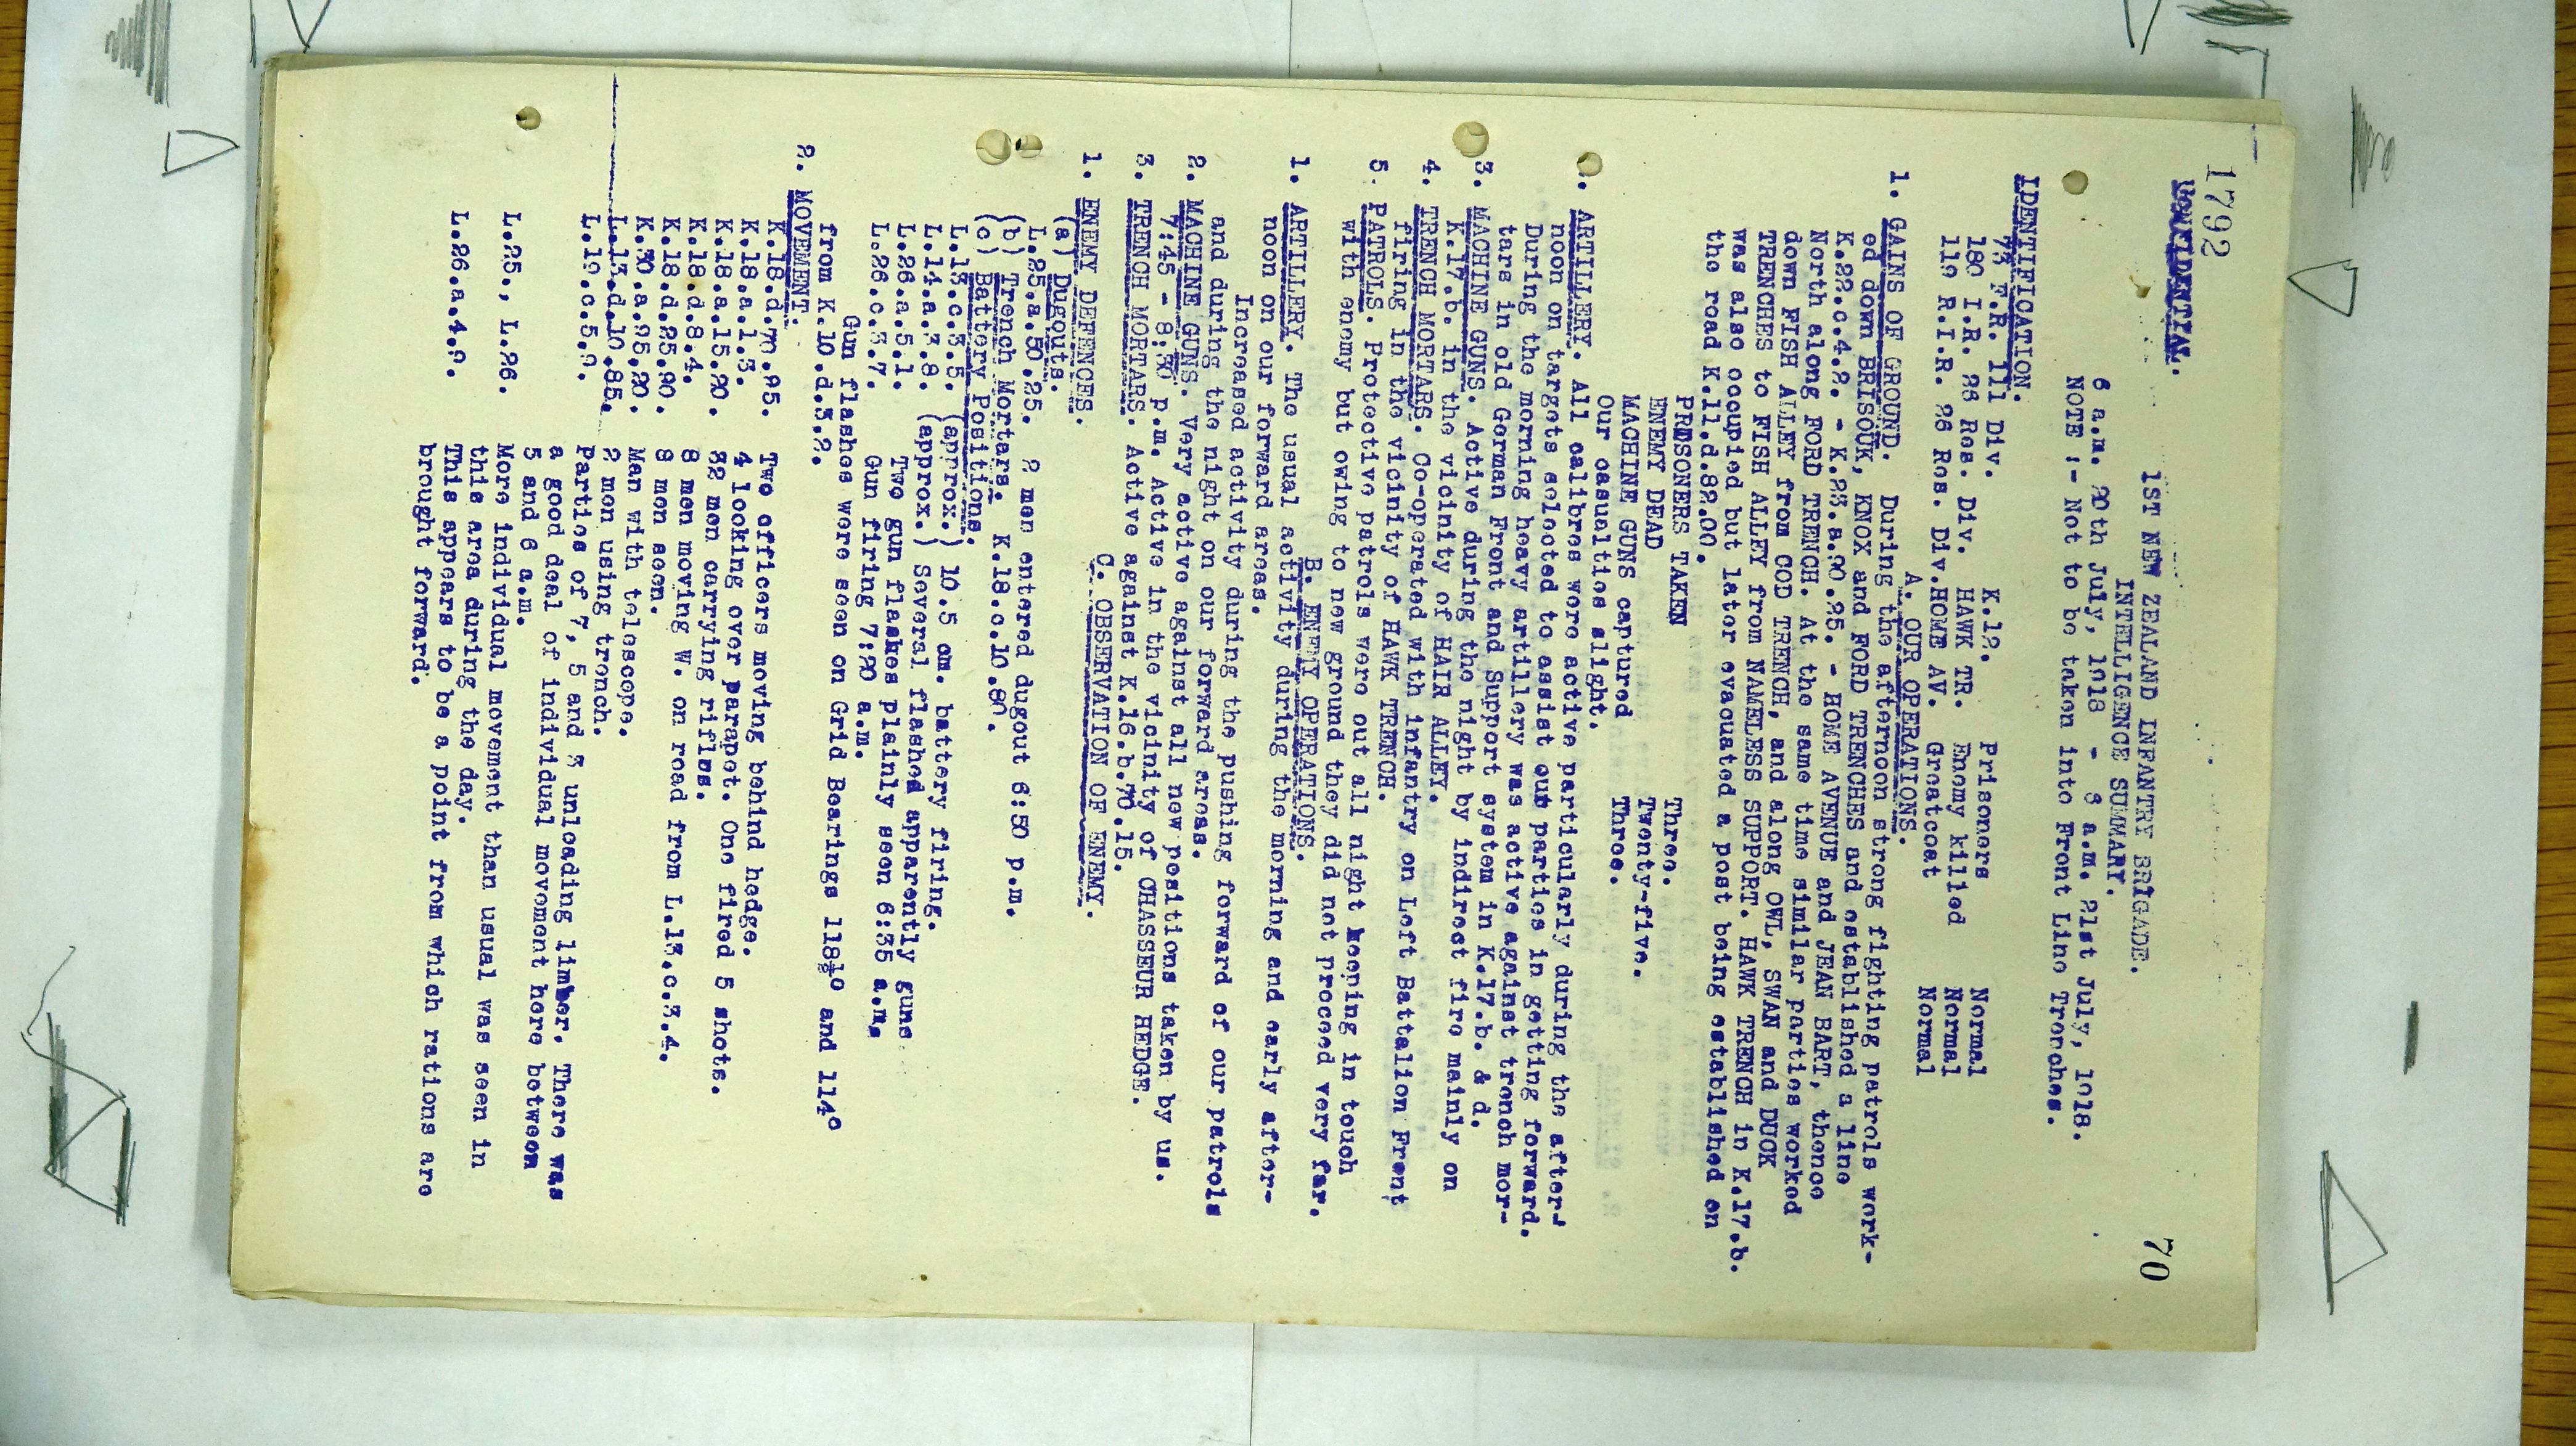 1792
70
CONFIDENTIAL.
1ST NEW ZEALAND INFANTRY BRIGADE.
INTELLIGENCE SUMMARY.
6 a.m. 20th July, 1918 - 6 a.m. 21st July, 1918.
NOTE :- Not to be taken into Front Line Trenches.
IDENTIFICATION.
73 F.R. 111 Div. K.12. Prisoners Normal
180 I.R. 26 Res. Div. HAWK TR. Enemy killed Normal
119 R.I.R. 26 Res. Div. HOME AV. Greatcoat Normal
A. OUR OPERATIONS.
1. GAINS OF GROUND. During the afternoon strong fighting patrols work-
ed down BRISOUK, KNOX and FORD TRENCHES and established a line
K.22.c.4.2. - K.23.a.90.25. - HOME AVENUE and JEAN BART, thence
North along FORD TRENCH. At the same time similar parties worked
down FISH ALLEY from COD TRENCH, and along OWL, SWAN and DUCK
TRENCHES to FISH ALLEY from NAMELESS SUPPORT. HAWK TRENCH in K.17.b.
was also occupied but later evacuated a post being established on
the road K.11.d.82.00.
PRISONERS TAKEN Three.
ENEMY DEAD Twenty-five.
MACHINE GUNS captured Three.
Our casualties slight.
. ARTILLERY. All calibres were active particularly during the after-
noon on targets selected to assist our parties in getting forward.
During the morning heavy artillery was active against trench mor-
tars in old German Front and Support system in K.17.b. & d.
3. MACHINE GUNS. Active during the night by indirect fire mainly on
K.17.b. in the vicinity of HAIR ALLEY.
4. TRENCH MORTARS. Co-operated with infantry on Left Battalion Front
firing in the vicinity of HAWK TRENCH.
5. PATROLS. Protective patrols were out all night keeping in touch
with enemy but owing to new ground they did not proceed very far.
B. ENEMY OPERATIONS.
1. ARTILLERY. The usual activity during the morning and early after-
noon on our forward areas.
Increased activity during the pushing forward of our patrols
and during the night on our forward areas.
2. MACHINE GUNS. Very active against all new positions taken by us.
7:45 - 8:30 p.m. Active in the vicinity of CHASSEUR HEDGE.
3. TRENCH MORTARS. Active against K.16.b.70.15.
C. OBSERVATION OF ENEMY.
1. ENEMY DEFENCES.
(a) Dugouts.
L.25.a.50.25. 2 men entered dugout 6:50 p.m.
(b) Trench Mortars. K.18.c.10.80.
(c) Battery Positions.
L.13.c.3.5. (approx.) 10.5 cm. battery firing.
L.14.a.3.8. (approx.) Several flashed apparently guns
L.26.a.5.1. Two gun flashes plainly seen 6:35 a.m.
L.26.c.3.7. Gun firing 7:20 a.m.
Gun flashes were seen on Grid Bearings 118½° and 114°
from K.10.d.3.2.
2. MOVEMENT.
K.18.d.70.95. Two officers moving behind hedge.
K.18.a.1.3. 4 looking over parapet. One fired 5 shots.
K.18.a.15.20. 32 men carrying rifles.
K.18.d.8.4. 8 men moving W. on road from L.13.c.3.4.
K.18.d.25.90. 8 men seen.
K.30.a.95.20. Man with telescope.
L.13.d.10.85. 2 men using trench.
L.19.c.5.9. Parties of 7, 5 and 3 unloading limber. There was
a good deal of individual movement here between
5 and 6 a.m.
L.25., L.26. More individual movement than usual was seen in
this area during the day.
L.26.a.4.9. This appears to be a point from which rations are
brought forward.